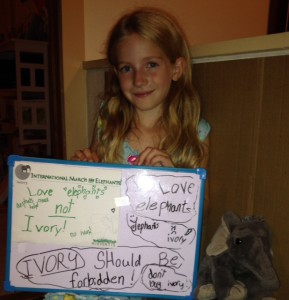 INTERNATIONAL MARCH FOR ELEPHANTS
Love "elephants"
not
Ivory!
Love
elephants!
elephants
ivory
IVORY Should Be
forbidden!
don't
buy ivory